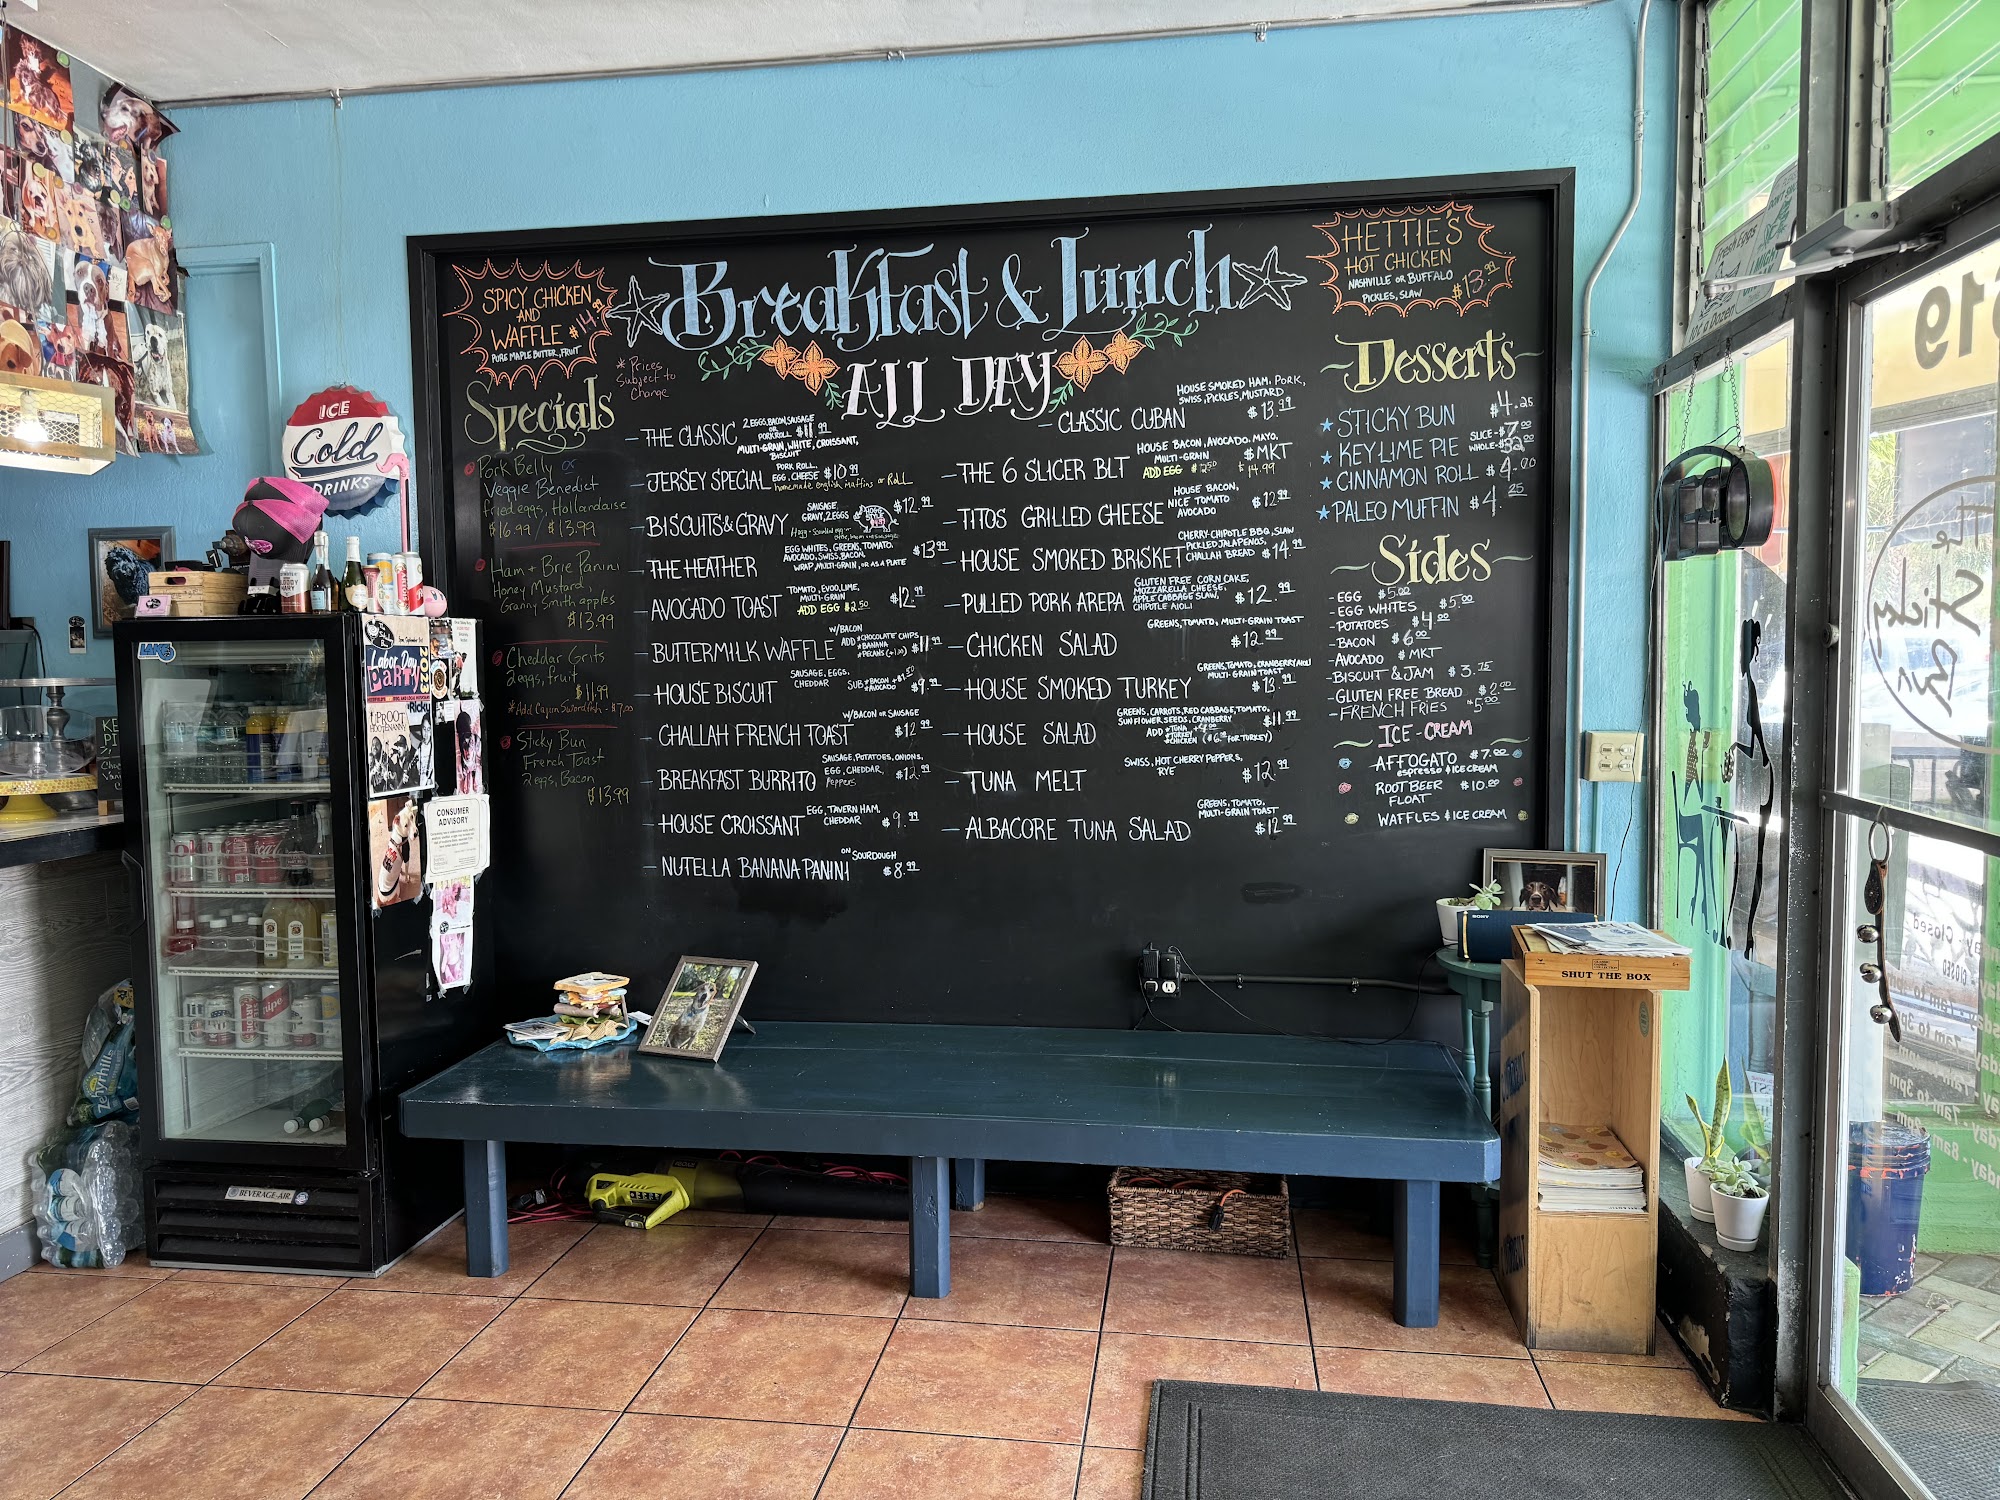 SPICY CHICKEN
AND
WAFFLE $14.99
PURE MAPLE BUTTER, FRUIT
Breakfast & Lunch
ALL DAY
* Prices
Subject to
Change
HETTIE'S
HOT CHICKEN
NASHVILLE OR BUFFALO
PICKLES, SLAW $13.99
Specials
Pork Belly or
Veggie Benedict
fried eggs, Hollandaise
$16.99 / $13.99
Ham + Brie Panini
Honey Mustard,
Granny Smith apples
$13.99
Cheddar Grits
2 eggs, fruit
$11.99
*Add Cajun Swordfish - $7.00
Sticky Bun
French Toast
2 eggs, Bacon
$13.99
- THE CLASSIC 2 EGGS, BACON, SAUSAGE
OR
PORK ROLL $11.99
MULTI-GRAIN, WHITE, CROISSANT,
BISCUIT
- JERSEY SPECIAL PORK ROLL,
EGG, CHEESE $10.99
homemade english muffins or ROLL
- BISCUITS & GRAVY SAUSAGE
GRAVY, 2 EGGS $12.99
- THE HEATHER EGG WHITES, GREENS, TOMATO,
AVOCADO, SWISS, BACON $13.99
WRAP, MULTI-GRAIN, OR AS A PLATE
- AVOCADO TOAST TOMATO, EVOO, LIME,
MULTI-GRAIN $12.99
ADD EGG $2.50
- BUTTERMILK WAFFLE W/BACON
ADD *CHOCOLATE CHIPS
*BANANA
*PECANS $11.99
- HOUSE BISCUIT SAUSAGE, EGGS,
CHEDDAR SUB *BACON +$1.50
*AVOCADO $9.99
- CHALLAH FRENCH TOAST W/BACON OR SAUSAGE
$12.99
- BREAKFAST BURRITO SAUSAGE, POTATOES, ONIONS,
EGG, CHEDDAR, Peppers $12.99
- HOUSE CROISSANT EGG, TAVERN HAM,
CHEDDAR $9.99
- NUTELLA BANANA PANINI ON SOURDOUGH
$8.99
- CLASSIC CUBAN HOUSE SMOKED HAM, PORK,
SWISS, PICKLES, MUSTARD
$13.99
- THE 6 SLICER BLT HOUSE BACON, AVOCADO, MAYO,
MULTI-GRAIN $MKT
ADD EGG $2.50 $14.99
- TITOS GRILLED CHEESE HOUSE BACON,
NICE TOMATO
AVOCADO $12.99
- HOUSE SMOKED BRISKET CHERRY-CHIPOTLE BBQ, SLAW
PICKLED JALAPENOS,
CHALLAH BREAD $14.99
- PULLED PORK AREPA GLUTEN FREE CORN CAKE,
MOZZARELLA CHEESE,
APPLE CABBAGE SLAW,
CHIPOTLE AIOLI $12.99
- CHICKEN SALAD GREENS, TOMATO, MULTI-GRAIN TOAST
$12.99
- HOUSE SMOKED TURKEY GREENS, TOMATO, CRANBERRY AIOLI
MULTI-GRAIN TOAST
$13.99
- HOUSE SALAD GREENS, CARROTS, RED CABBAGE, TOMATO,
SUNFLOWER SEEDS, CRANBERRY $11.99
ADD *TUNA
*TURKEY
*CHICKEN
- TUNA MELT SWISS, HOT CHERRY PEPPERS,
RYE $12.99
- ALBACORE TUNA SALAD GREENS, TOMATO,
MULTI-GRAIN TOAST
$12.99
Desserts
STICKY BUN $4.25
KEY LIME PIE SLICE-$7.00
WHOLE-$32.00
CINNAMON ROLL $4.00
PALEO MUFFIN $4.25
Sides
- EGG $5.00
- EGG WHITES $5.00
- POTATOES $4.00
- BACON $6.00
- AVOCADO $MKT
- BISCUIT & JAM $3.75
- GLUTEN FREE BREAD $2.00
- FRENCH FRIES $5.00
ICE-CREAM
AFFOGATO $7.00
espresso & ICE CREAM
ROOT BEER $10.00
FLOAT
WAFFLES & ICE CREAM
ICE
Cold
DRINKS
Labor Day
PARTY
2022
CONSUMER
ADVISORY
BEVERAGE-AIR
Zephyrhills
SONY
SHUT THE BOX
619
The
Sticky
Bun